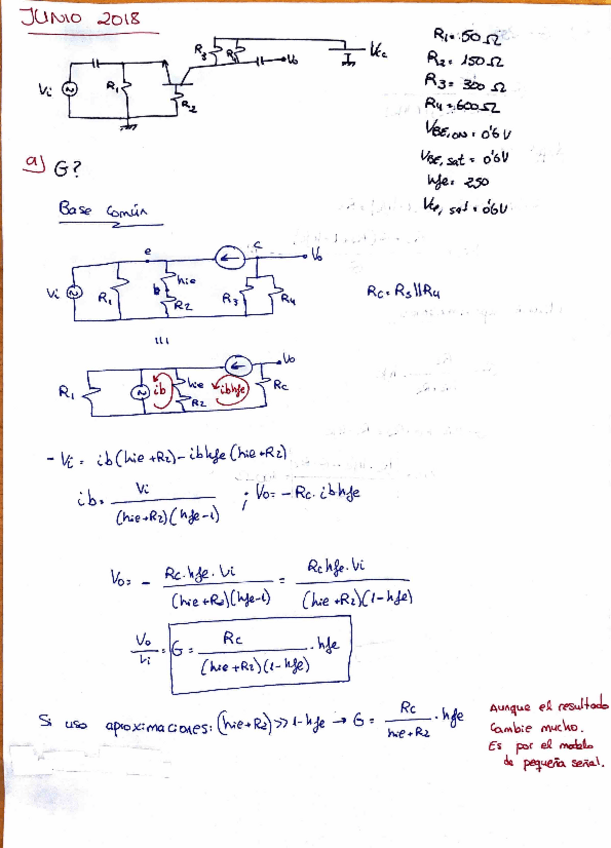 JUNIO 2018
R1 = 50 Ω
R2 = 150 Ω
R3 = 300 Ω
R4 = 600 Ω
VBE, ON = 0'6 V
VBE, sat = 0'6V
hfe = 250
Vce, sat = 0'6V
R3
R4
Vo
Vcc
Vi
R1
R2
a) G?
Base Común
e
c
Vo
Vi
R1
hie
b
R2
R3
R4
Rc = R3 || R4
Vo
R1
ib
hie
R2
ibhfe
Rc
- Vi = ib (hie + R2) - ibhfe (hie + R2)
ib = Vi / (hie + R2)(hfe - 1) ; Vo = - Rc · ibhfe
Vo = - Rc · hfe · Vi / (hie + R2)(hfe - 1) = Rc hfe · Vi / (hie + R2)(1 - hfe)
Vo / Vi = G = Rc / (hie + R2)(1 - hfe) · hfe
Si uso aproximaciones: (hie + R2) >> 1 - hfe → G = Rc / hie + R2 · hfe
Aunque el resultado
cambie mucho.
Es por el modelo
de pequeña señal.